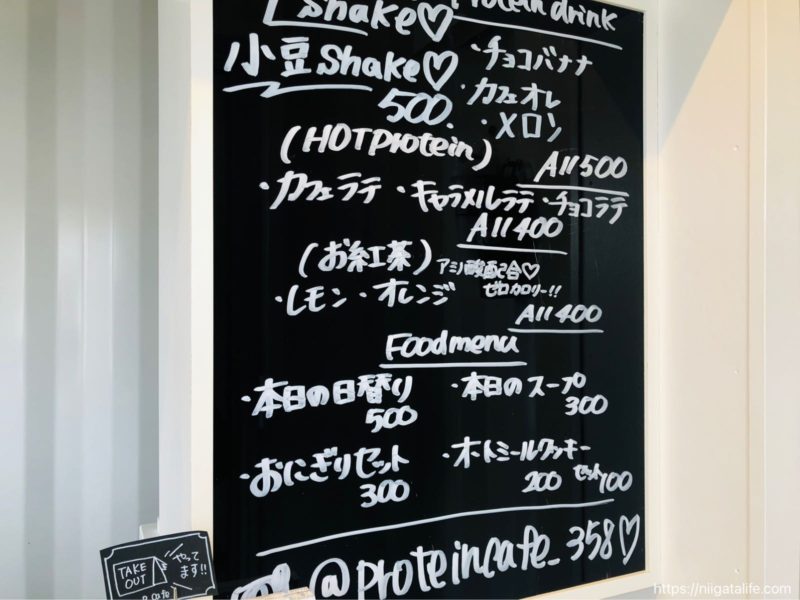 Shake♡
Protein drink
小豆Shake♡
500.
・チョコバナナ
・カフェオレ
・メロン
All 500
(HOT Protein)
・カフェラテ ・キャラメルラテ ・チョコラテ
All 400
(お紅茶) アミノ酸配合♡
ゼロカロリー!!
・レモン ・オレンジ
All 400
Food menu
・本日の日替り
500
・本日のスープ
300
・おにぎりセット
300
・オートミールクッキー
200 セット100
@proteincafe_358♡
TAKE OUT
やってます!!
https://niigatalife.com